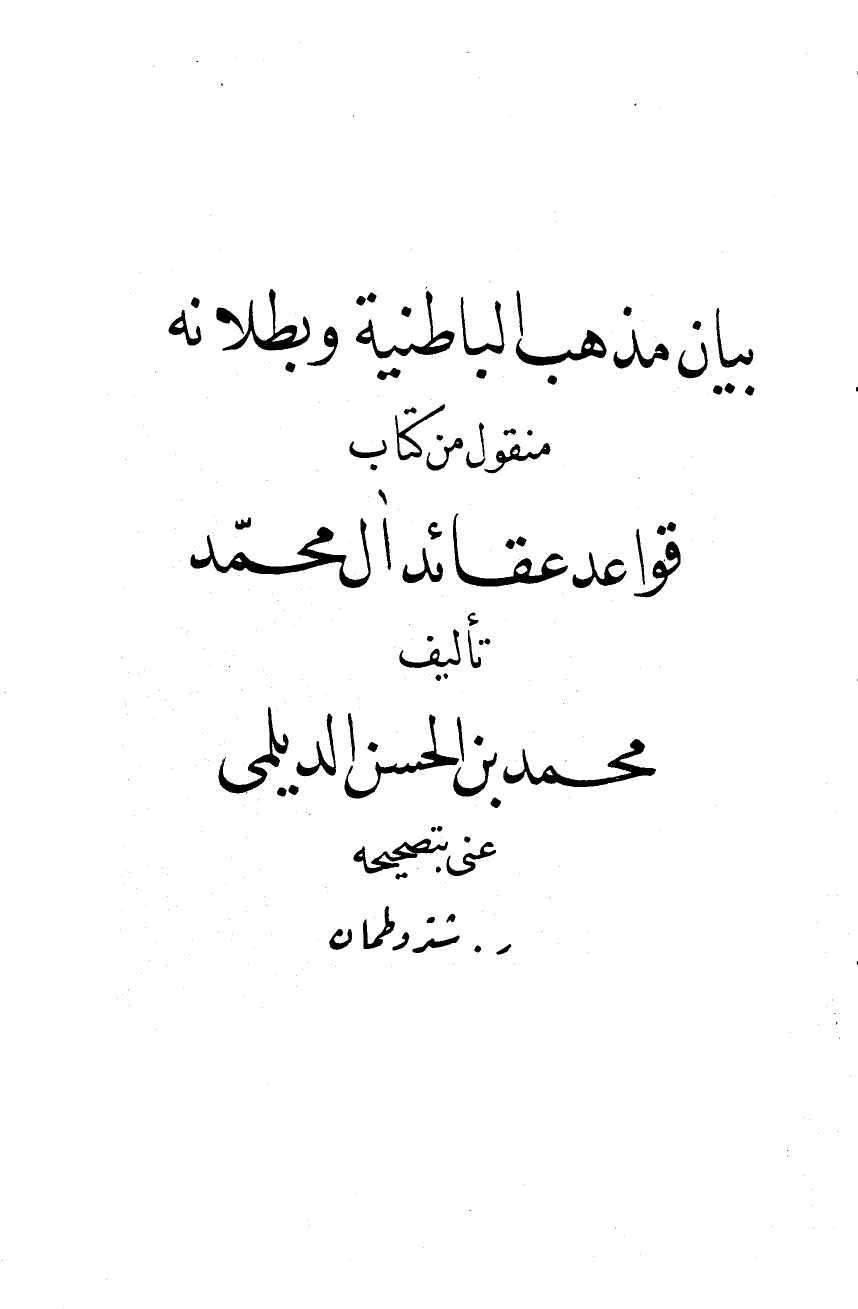 بيان مذهب الباطنية وبطلانه
منقول من كتاب
قواعد عقائد آل محمّد
تأليف
محمد بن الحسن الديلمى
عنى بتصحيحه
ر . شتروطمان